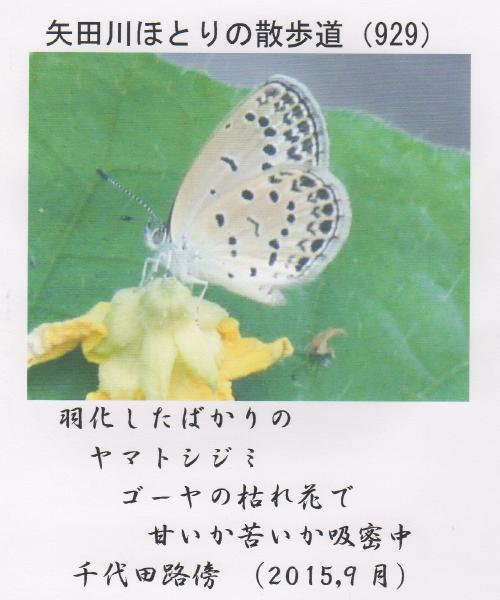 矢田川ほとりの散歩道（929）
羽化したばかりの
ヤマトシジミ
ゴーヤの枯れ花で
甘いか苦いか吸密中
千代田路傍　（2015,9月）